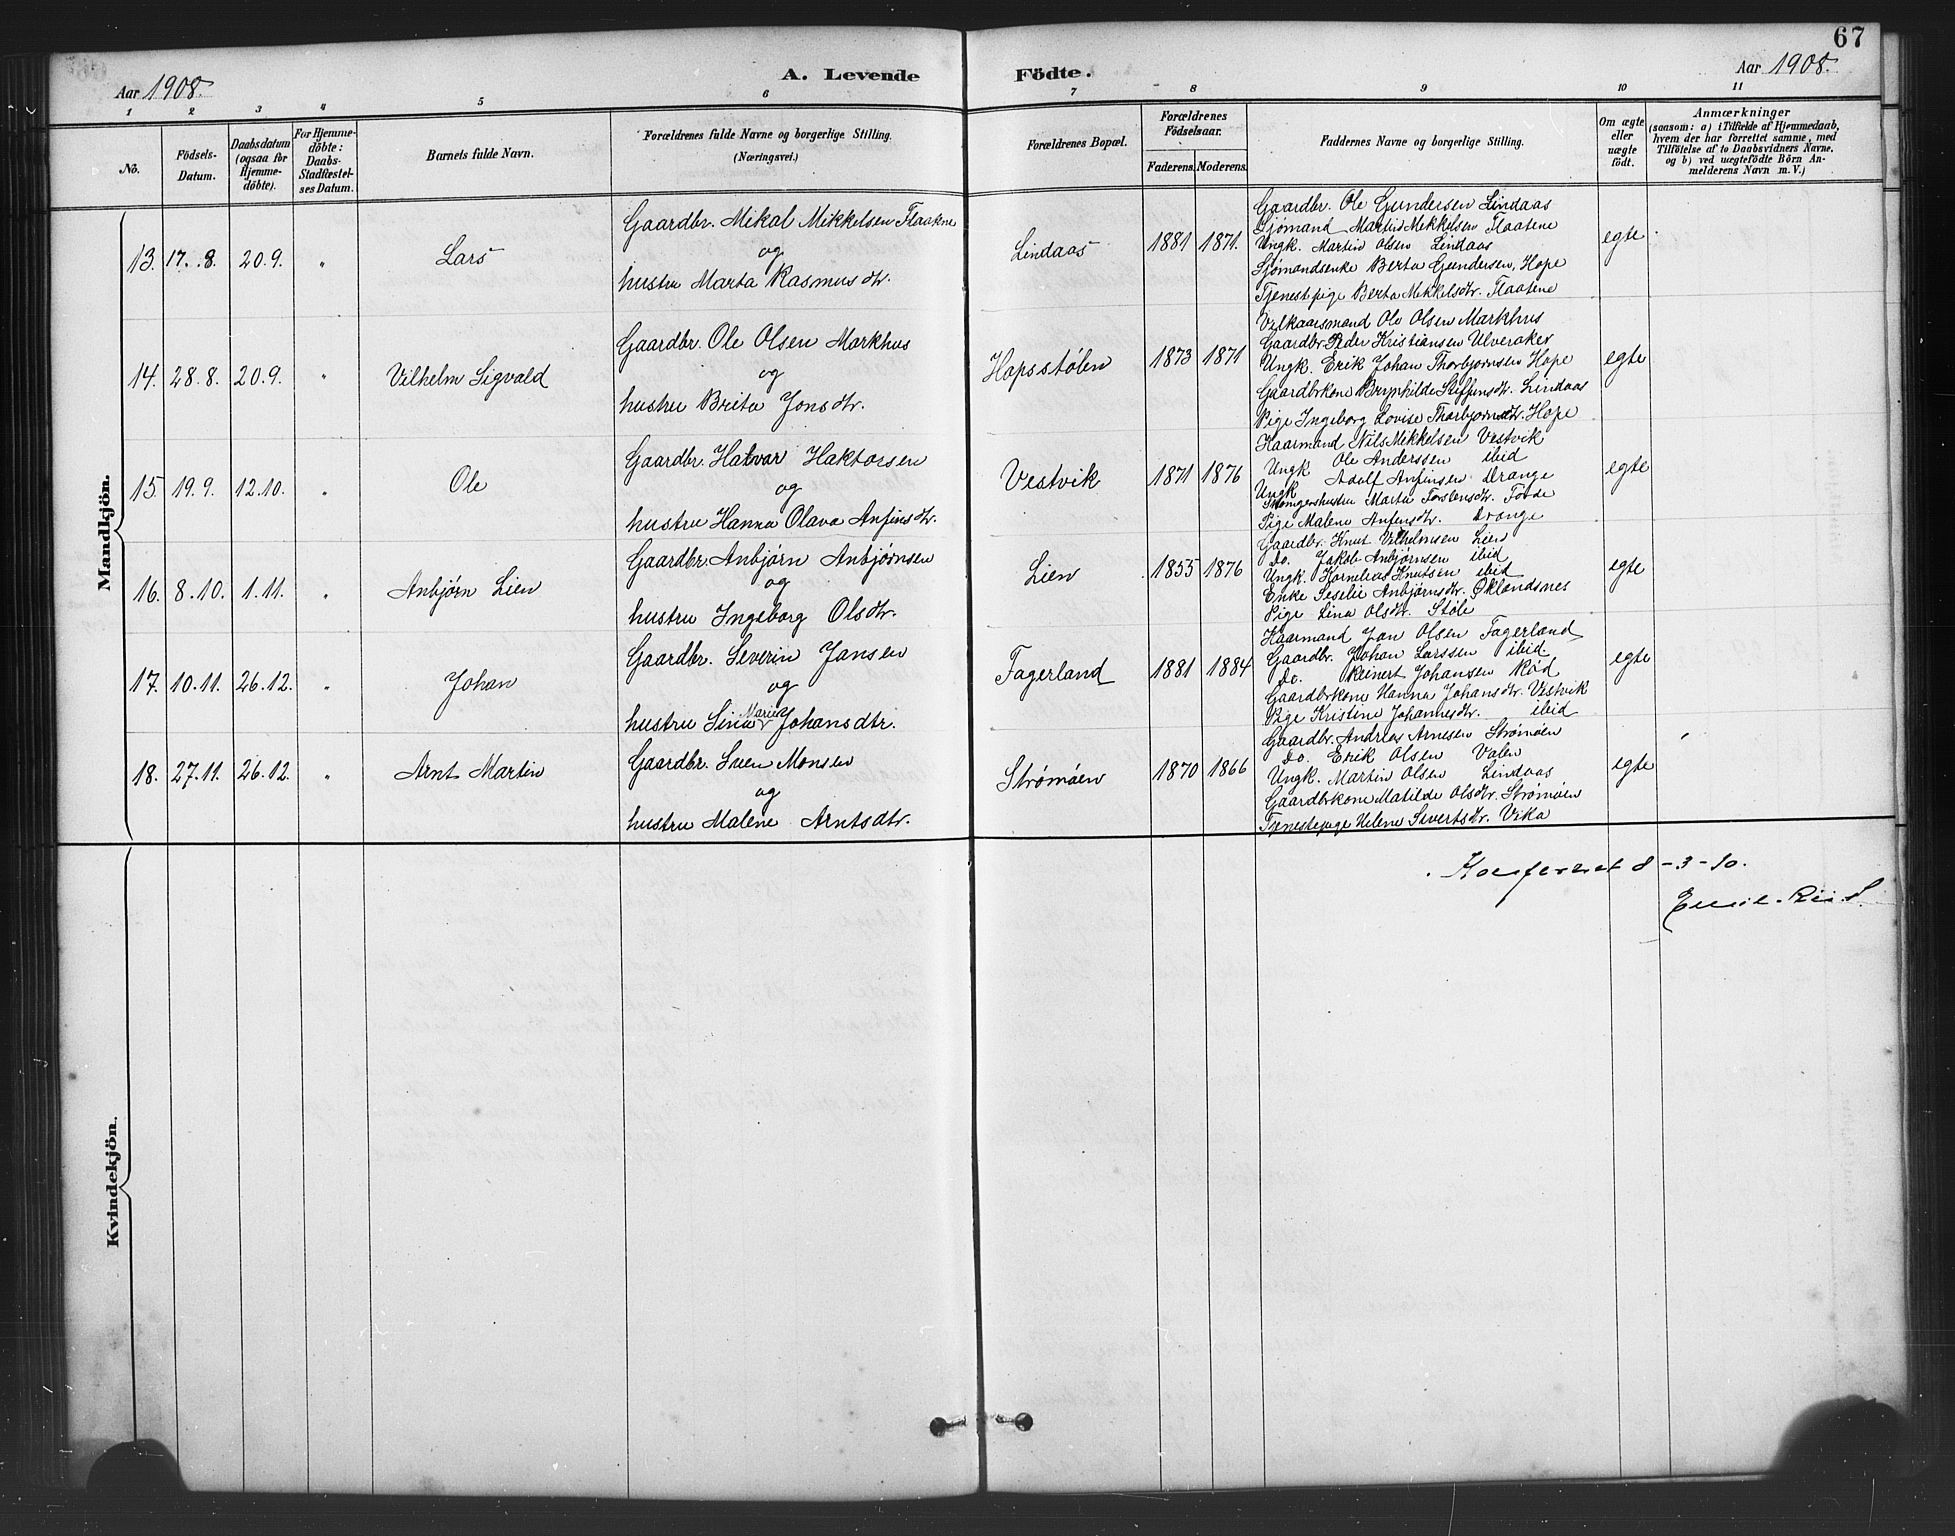 67
Aar 1908.
A. Levende Födte.
Aar 1908.
1 2 3 4 5 6 7 8 9 10 11
No.
Födsels-Datum.
Daabsdatum (ogsaa for Hjemme-döbte).
For Hjemme-döbte: Daabs-Stadfæstel-ses Datum.
Barnets fulde Navn.
Forældrenes fulde Navne og borgerlige Stilling.
(Næringsvei.)
Forældrenes Bopæl.
Forældrenes Födselsaar.
Faderens. Moderens.
Faddernes Navne og borgerlige Stilling.
Om ægte eller uægte födt.
Anmærkninger
(saasom: a) i Tilfælde af Hjemmedaab,
hvem der har forrettet samme, med
Tilföielse af to Daabsvidners Navne.
og b) ved uægtefödte Börn An-
melderens Navn m. V.)
Mandkjön.
13. 17..8. 20.9. " Lars
Gaardbr. Mikal Mikkelsen Flaakne
og
hustru Marta Rasmusdtr.
Lindaas 1881 1871.
Gaardbr. Ole Gundersen Lindaas
Sjømand Martin Mikkelsen Flaatene
Ungk. Martin Olsen Lindaas
Sjømandsenke Berta Gundersen, Hope
Tjenestpige Berta Mikkelsdtr. Flaatene
egte
14. 28.8. 20.9. " Vilhelm Sigvald
Gaardbr. Ole Olsen Markhus
og
hustru Brita Jonsdtr.
Hopsstølen 1873 1871
Vilkaarsmand Ole Olsen Markhus
Gaardbr. Peder Kristiansen Ulveraker
Ungk. Erik Johan Thorbjørnsen Hope
Gaardbrkone Brynhilde Steffensdtr. Lindaas
Pige Ingeborg Lovise Thorbjørnsdtr. Hope
egte
15. 19.9. 12.10. " Ole
Gaardbr. Halvar Haktorsen
og
hustru Hanna Olava Anfinsdtr.
Vestvik 1871 1876
Kaarmand Nils Mikkelsen Vestvik
Ungk Ole Anderssen ibid
Ungk Adolf Anfinsen Drange
Marta Torstensdtr. Førde
Pige Malene Anfensdtr. Drange
egte
16. 8.10. 1.11. " Anbjørn Lien
Gaardbr. Anbjørn Anbjørnsen
og
hustru Ingeborg Olsdtr.
Lien 1855 1876
Gaardbr. Knut Vilhelmsen Lien
Do. Jakob Anbjørnsen ibid
Ungk. Kornelius Knutsen ibid
Enke Seselie Anbjørnsdtr. Øklandsnes
Pige Lina Olsdtr. Støle
egte
17. 10.11. 26.12. " Johan
Gaardbr. Severin Jansen
og
hustru Sina Marie Johansdtr.
Fagerland 1881 1884
Kaarmand Jan Olsen Fagerland
Gaardbr. Johan Larssen ibid
Do. Reinert Johansen Rød
Gaardbrkone Hanna Johansdtr. Vestvik
Pige Kristine Johannesdtr. ibid
egte
18. 27.11. 26.12. " Arnt Martin
Gaardbr. Sven Monsen
og
hustru Malene Arntsdtr.
Strømøen 1870 1866
Gaardbr. Andreas Arnesen Strømøen
Do. Erik Olsen Valen
Ungk. Martin Olsen Lindaas
Gaardbrkone Matilde Olsdtr. Strømøen
Tjenestepige Helene Sivertsdtr. Vika
egte
Konfereret 8-3-10.
Kvindekjön.